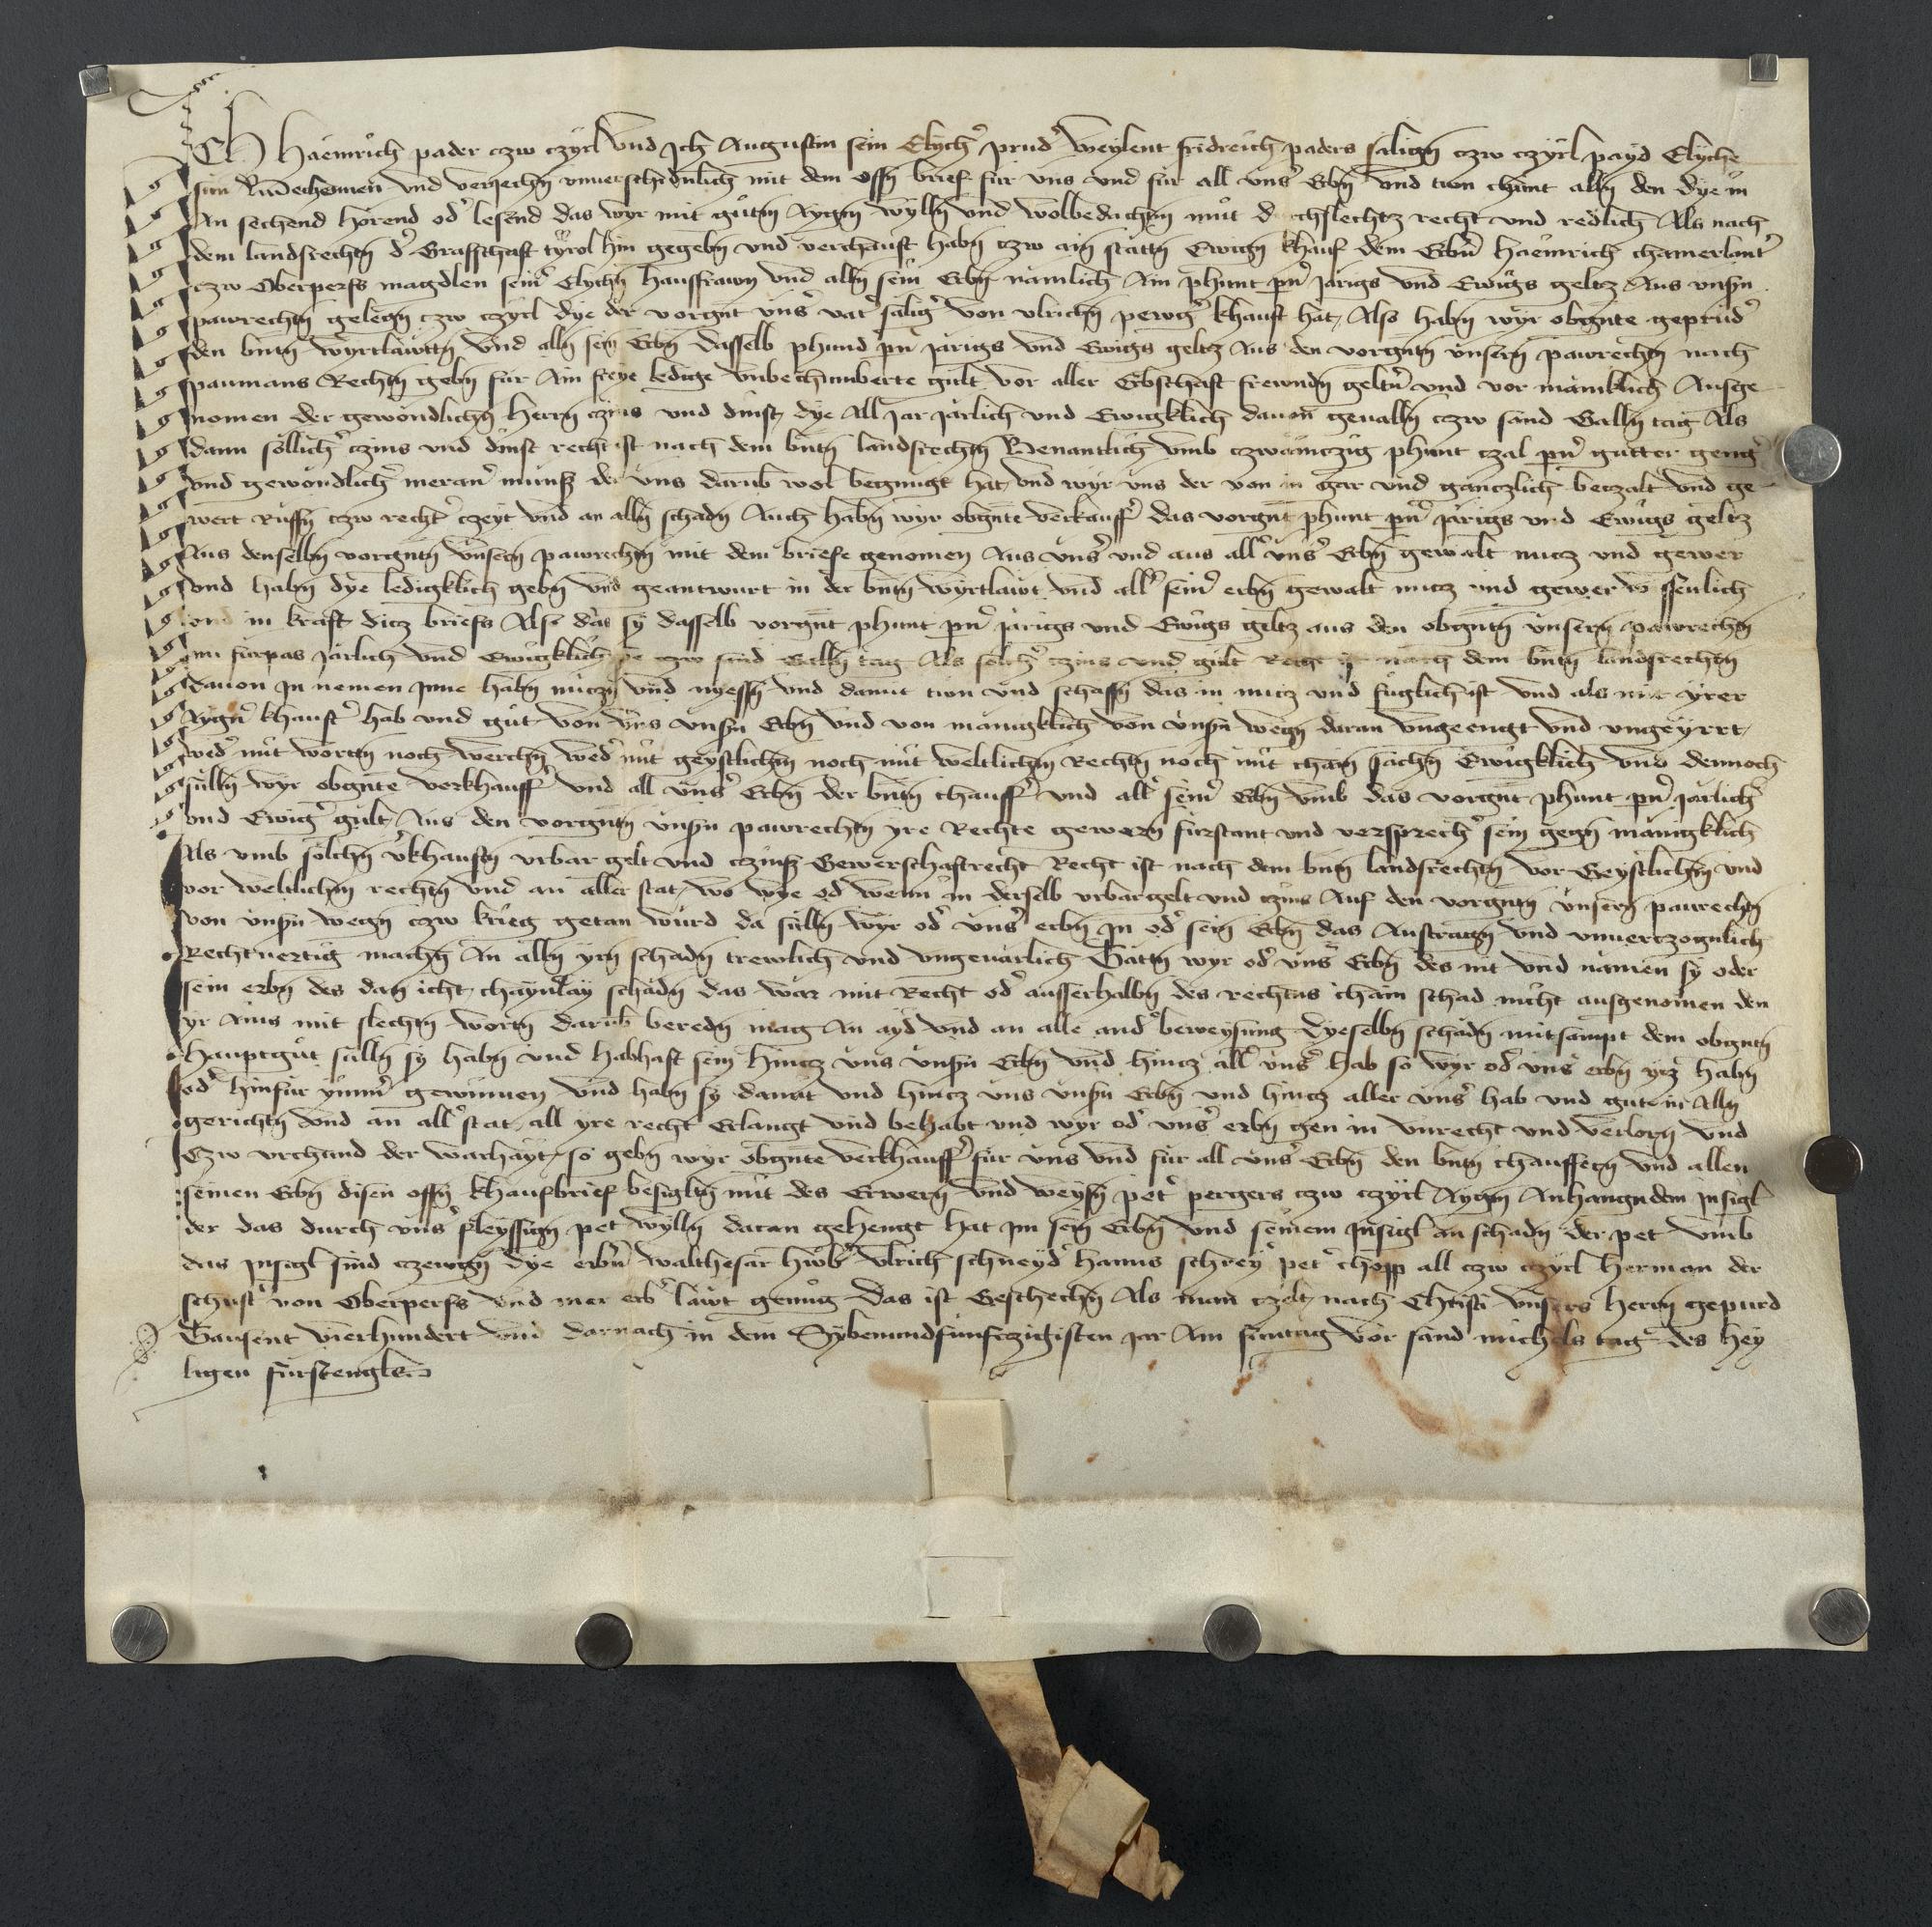 Ich Haeinrich pader czw czyrl vnd Jch Augustin sein Elych' prud' Weylent fridreich paders salign czw czyrl payd Elyche
sun Bechennen vnd veriechn vnuerschidnlich mit dem offn brief fur vns vnd fur all vns' Erbn vnd twn chunt alln den dye in
An sechend horend od' lesend das wyr mit gutm Aygm wylln vnd wolbedachtm mut d chslechtz recht vnd redlich Als nach
dem landsrechtn d' Graffschaft tyrol hin gegebn vnd verchauft habn czw ain stattn Ewign khauf dem Erbn Haeinrich chamerlant'
czw Oberperfs magdlen sein' Elychn hausfrawn vnd alln sein Erbn namlich Ain phunt pn' Jarigs vnd Ewigs geltz Aus vnsn
pawrechtn gelegn czw czyrl dye der vorgnt vns' vat' salig' von vlrichn pewg' khauft hat, Also habn wyr obgnte geprud'
den bntn wyrtlawttn vnd alln sein Erbn dasselb phund pn' Jarigs vnd Ewigs geltz Aus den vorgntn vnsern pawrechtn nach
paumans Rechtn gebn fur Ain freye ledige vnbechumberte gult vor aller Erbschaft frewndn geltn' vnd vor maniklich Ausge
nomen der gewondlichn Herrn czins vnd dinst, dye All Jar Jarlich vnd Ewigklich dauon geualln czw sand Galln tag Als
dann sollich' czins vnd dinst recht ist nach dem bntn landsrechtn Benantlich vmb czwainczig phunt czal pn' gutter geng'
vnd gewondlich' meran' munss der vns darub wol benugt hat, vnd wyr vns der von in gar vnd ganczlich beczalt vnd ge
wert Ruffn czw recht' czeyt vnd an alln schadn Auch habn wyr obgnte verkauff' das vorgnt phunt pn' Jarigs vnd Ewigs geltz
Aus denselbn vorgntn vnsern pawrechtn mit dem briefe genomen Aus vns' vnd aus all' vns' Erbn gewalt nucz vnd gewer
vnd habn dye ledigklich gebn vnd geantwurt in der bntn wyrtlawt vnd all' sein' erbn gewalt nucz vnd gewer wissenlich
vnd in kraft dicz briefs Also das sy dasselb vorgnt phunt pn' Jarigs vnd Ewigs geltz aus den obgntn vnsern pawrechtn
nu furpas Jarlich vnd Ewigklich ye czw sand Galln tag Als solch' czins vnd gult Recht ist nach dem bntn landsrechtn
dauon Jn nemen Jnne habn nuczn vnd nyessn vnd damit twn vnd schaffn das in nucz vnd fuglich ist vnd als mit yrer
Aygn' khauft' hab vnd gut von vns vnsn Erbn vnd von manigklich von vnsn wegn daran vngeengt vnd vngeyrrt,
wed' mit wortn noch werchn wed' mit geystlichm noch mit weltlichm Rechtn noch mit chain sachn Ewigklich vnd dennoch
sulln wyr obgnte verkhauff' vnd all vns' Erbn der bntn chauff' vnd all' sein' Erbn vmb das vorgnt phunt pn' Jarlich'
vnd Ewig' gult, Aus den vorgntn vnsn pawrechtn yre Rechte gewern furstant vnd versprech' sein gegn manigklich
Als vmb solchn v'khauftn vrbar gelt vnd czinss Gewerschaftrecht Recht ist nach dem bntn landsrechtn vor Geystlichm vnd
vor weltlichm rechtn vnd an aller stat, wo wye od' wenn in derselb vrbargelt vnd czins Auf den vorgntn vnsern paurechtn
von vnsn wegn czw krieg getan wurd da sulln wyr od' vns' erbn Jn od' sein Erbn das Austragn vnd vnuerczognlich
Rechtuertig machn An alln yrn schadn trewlich vnd vngeuarlich Tatn wyr od' vns' Erbn des nit vnd namen sy oder
sein erbn des dan icht, chaynlay schadn das war mit Recht od' ausserhalbn des rechtns chain schad nicht ausgenomen den
yr Ains mit slechtn wortn darub beredn mag An ayd vnd an alle and' beweysung dyeselbn schadn mitsampt dem obgntn
Hauptgut sulln sy habn vnd habhaft sein Hincz vns vnsn Erbn vnd hincz all' vns' hab so wyr od' vns' erbn ycz habn
od' hinfur ymm' gewinnen vnd habn sy damit vnd hincz vns vnsn Erbn vnd hincz aller vns' hab vnd gut in Alln
gerichtn vnd an all' stat, all yre recht Erlangt vnd behabt vnd wyr od' vns' erbn gen in vnrecht vnd verlorn vnd
Czw vrchund der warhayt, so gebn wyr obgnte verkhauff' fur vns vnd fur all vns' Erbn den bntn chauffern vnd allen
seinen Erbn disen offn khaufbrief besigltn mit des Erwern vnd weysn pet' pergers czw czyrl Aygm Anhangndem Jnsigl
der das durch vns' fleyssign pet wylln daran gehengt hat im sein Erbn vnd seinem Jnsigl an schadn der pet vmb
das Jnsigl sind czewgn dye erbn' walthesar hwb' vlrich schneyd' hanns schrey' pet' chopp all czw czyrl Herman der
schust' von Oberperfs vnd mer erb' lawt genug Das ist Geschechn Als man czelt, nach Christi vnsers Herrn gepurd
Tausent vierhundert vnd darnach in dem Sybenundfunfczigisten Jar Am suntag vor sand michels tag des hey
ligen furstengls